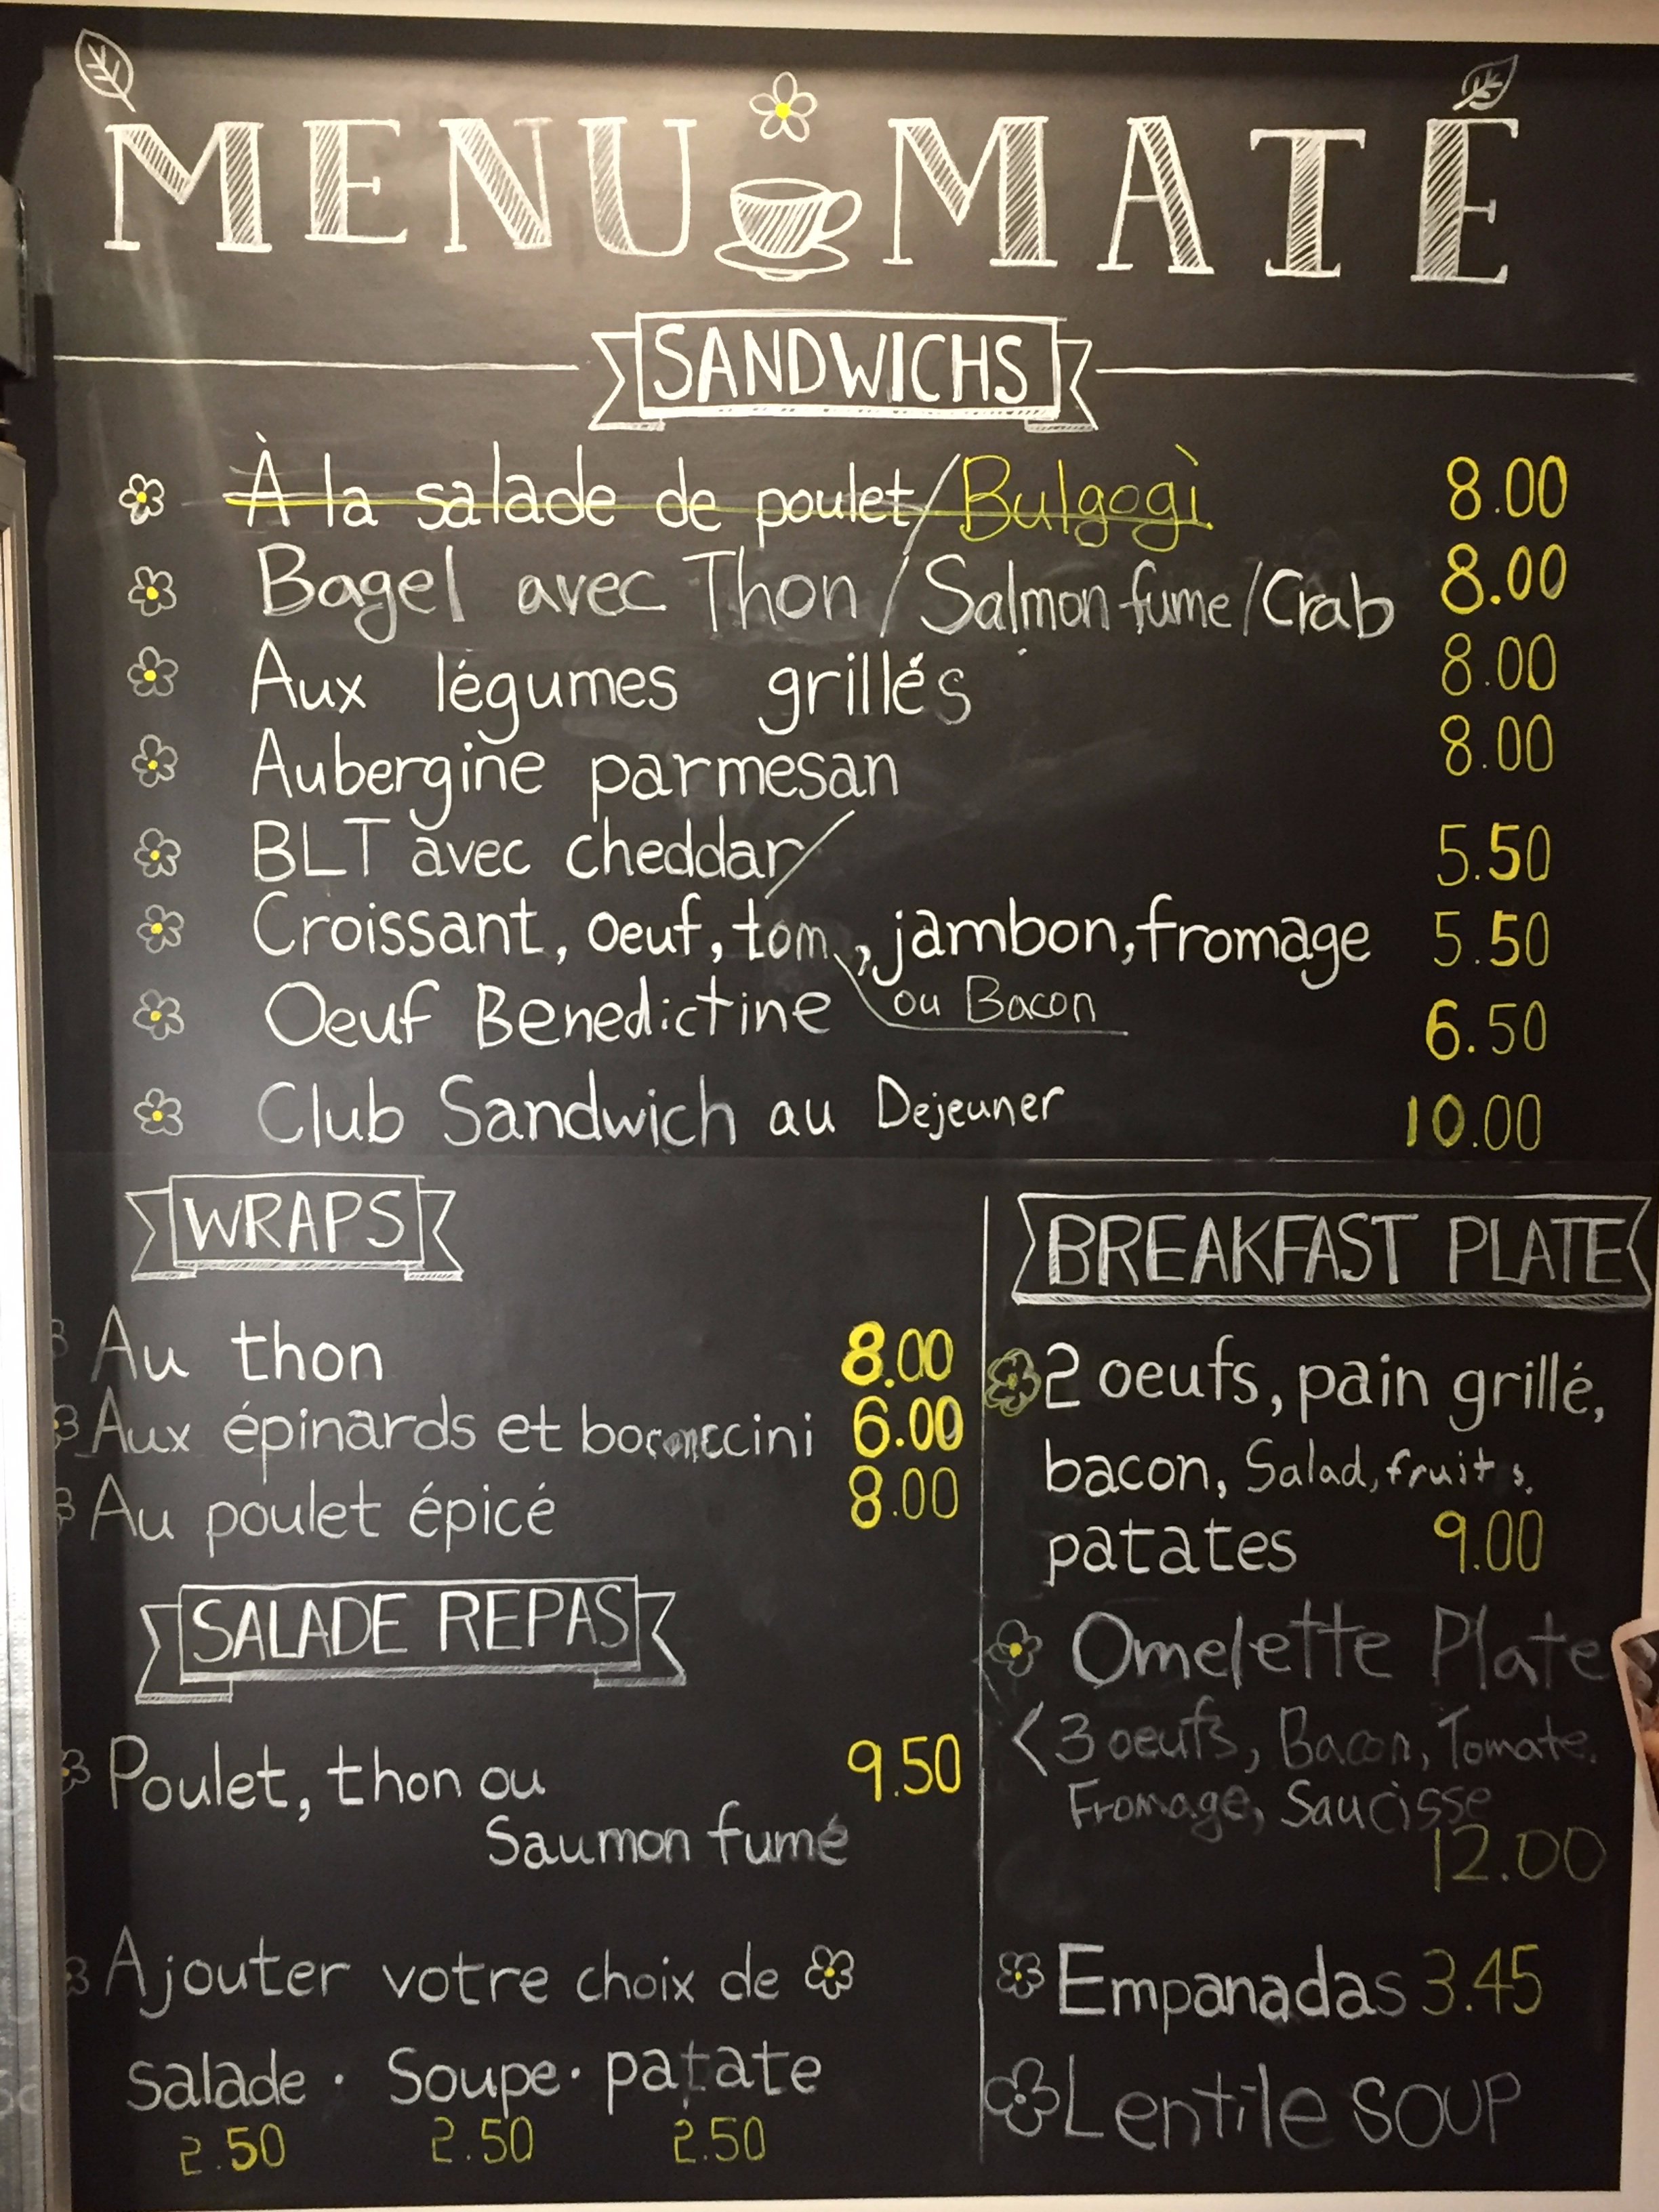 MENU MATÉ
SANDWICHS
À la salade de poulet/Bulgogì 8.00
Bagel avec Thon/Salmon fume/Crab 8.00
Aux légumes grillés 8.00
Aubergine parmesan 8.00
BLT avec cheddar/ 5.50
Croissant, oeuf, tom., jambon, fromage 5.50
ou Bacon
Oeuf Benedictine 6.50
Club Sandwich au Dejeuner 10.00
WRAPS
Au thon 8.00
Aux épinards et boconccini 6.00
Au poulet épicé 8.00
SALADE REPAS
Poulet, thon ou 9.50
Saumon fumé
Ajouter votre choix de
salade · Soupe · patate
2.50 2.50 2.50
BREAKFAST PLATE
2 oeufs, pain grillé,
bacon, Salad, fruits,
patates 9.00
Omelette Plate
<3 oeufs, Bacon, Tomate,
Fromage, Saucisse
12.00
Empanadas 3.45
Lentile SOUP